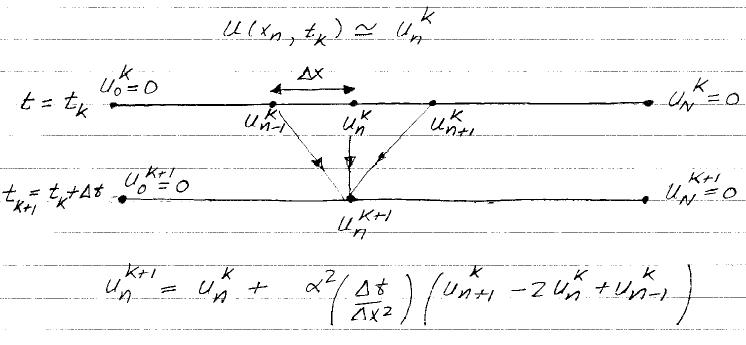 u(xₙ, tₖ) ≃ uₙᵏ
Δx
t = tₖ u₀ᵏ=0 uₙ₋₁ᵏ uₙᵏ uₙ₊₁ᵏ u_Nᵏ=0
tₖ₊₁ = tₖ+Δt u₀ᵏ⁺¹=0 uₙᵏ⁺¹ u_Nᵏ⁺¹=0
uₙᵏ⁺¹ = uₙᵏ + α²(Δt/Δx²)(uₙ₊₁ᵏ − 2uₙᵏ + uₙ₋₁ᵏ)